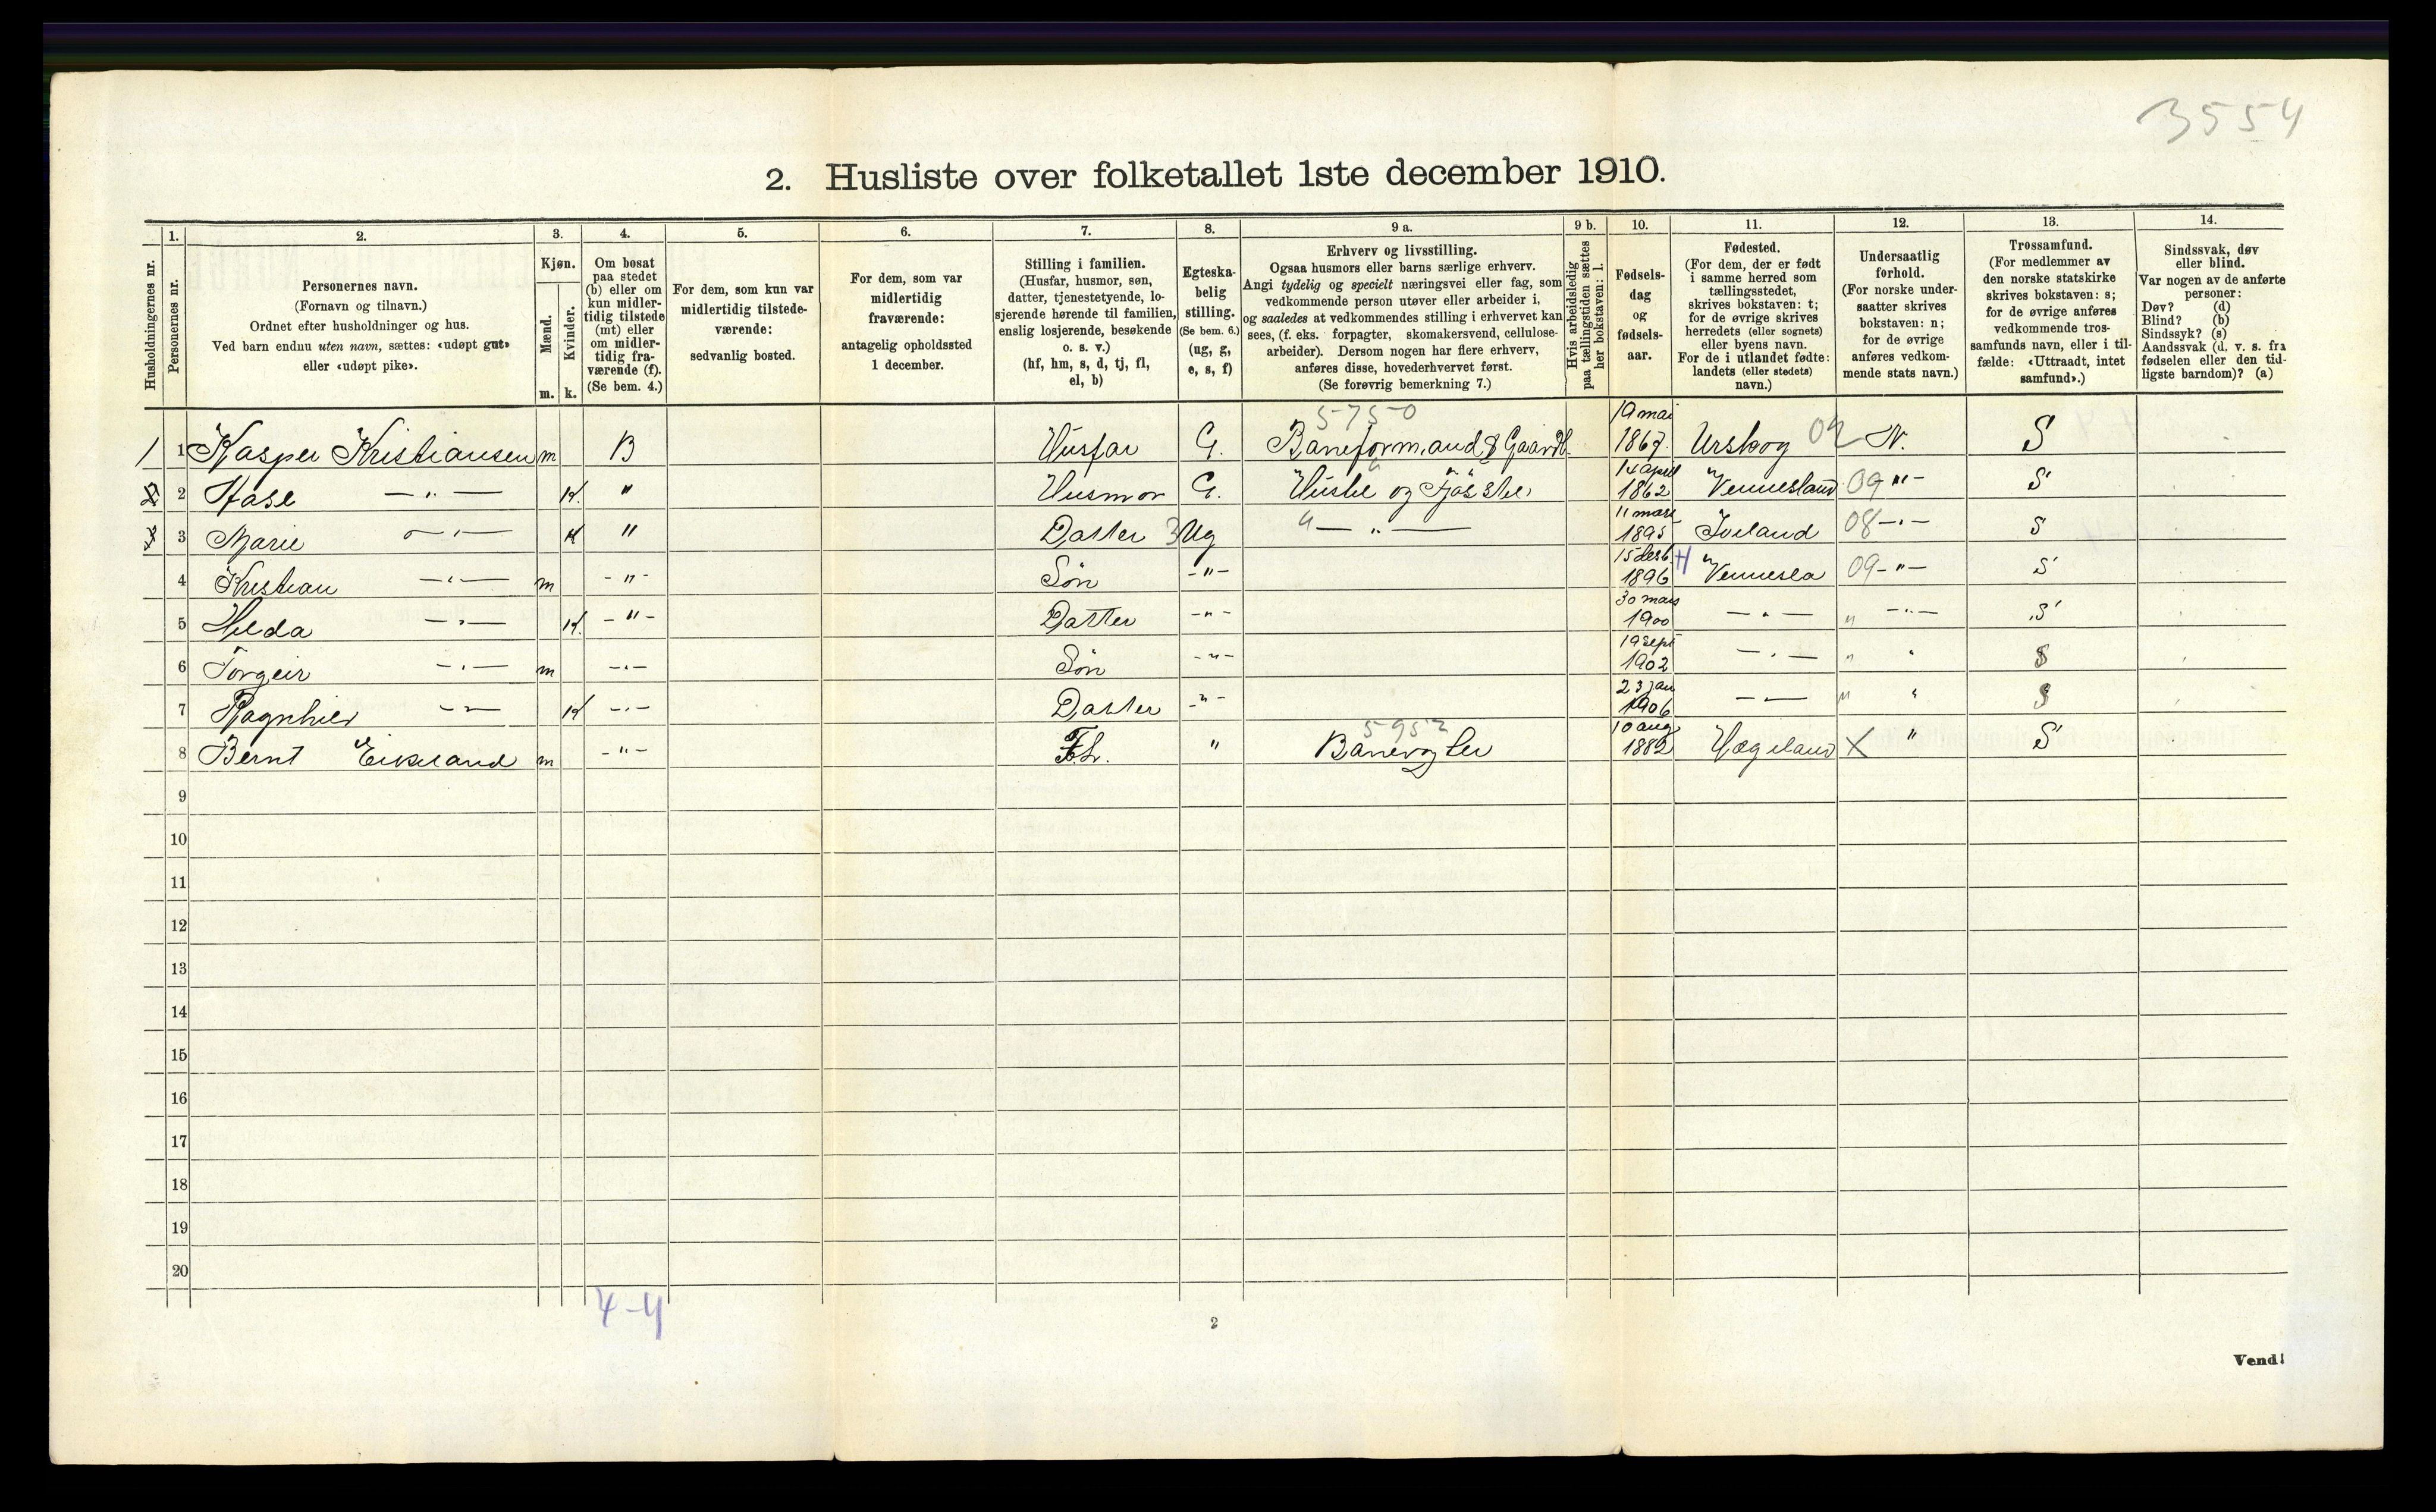 3554
2. Husliste over folketallet 1ste december 1910.
1. 2. 3. 4. 5. 6. 7. 8. 9 a. 9 b. 10. 11. 12. 13. 14.
Husholdningernes nr.
Personernes nr.
Personernes navn.
(Fornavn og tilnavn.)
Ordnet efter husholdninger og hus.
Ved barn endnu uten navn, sættes: «udøpt gut»
eller «udøpt pike».
Kjøn.
Mænd.
Kvinder.
m. k.
Om bosat
paa stedet
(b) eller om
kun midler-
tidig tilstede
(mt) eller
om midler-
tidig fra-
værende (f).
(Se bem. 4.)
For dem, som kun var
midlertidig tilstede-
værende:
sedvanlig bosted.
For dem, som var
midlertidig
fraværende:
antagelig opholdssted
1 december.
Stilling i familien.
(Husfar, husmor, søn,
datter, tjenestetyende, lo-
sjerende hørende til familien,
enslig losjerende, besøkende
o. s. v.)
(hf, hm, s, d, tj, fl,
el, b)
Egteska-
belig
stilling.
(Se bem. 6.)
(ug, g,
e, s, f)
Erhverv og livsstilling.
Ogsaa husmors eller barns særlige erhverv.
Angi tydelig og specielt næringsvei eller fag, som
vedkommende person utøver eller arbeider i,
og saaledes at vedkommendes stilling i erhvervet kan
sees, (f. eks. forpagter, skomakersvend, cellulose-
arbeider). Dersom nogen har flere erhverv,
anføres disse, hovederhvervet først.
(Se forøvrig bemerkning 7.)
Hvis arbeidsledig
paa tællingstiden sættes
her bokstaven: l.
Fødsels-
dag
og
fødsels-
aar.
Fødested.
(For dem, der er født
i samme herred som
tællingsstedet,
skrives bokstaven: t;
for de øvrige skrives
herredets (eller sognets)
eller byens navn.
For de i utlandet fødte:
landets (eller stedets)
navn.)
Undersaatlig
forhold.
(For norske under-
saatter skrives
bokstaven: n;
for de øvrige
anføres vedkom-
mende stats navn.)
Trossamfund.
(For medlemmer av
den norske statskirke
skrives bokstaven: s;
for de øvrige anføres
vedkommende tros-
samfunds navn, eller i til-
fælde: «Uttraadt, intet
samfund».)
Sindssvak, døv
eller blind.
Var nogen av de anførte
personer:
Døv? (d)
Blind? (b)
Sindssyk? (s)
Aandssvak (d. v. s. fra
fødselen eller den tid-
ligste barndom)? (a)
5750 19 mai
1 1 Kasper Kristiansen m B Husfar G. Baneformand & Gaardb. 1867 Urskog 02 N. S
14 april
2 Aase —„— K. " Husmor G. Husstel og Fjøsstel 1862 Vennesland 09 -"- S
11 mars
3 Marie —„— K " Datter 3 Ug "— „ — 1895 Iveland 08 -„- S
15 desb.
4 Kristian —„— m -"- Søn -"- 1896 H Vennesla 09 -"- S
30 mars
5 Helda —„— K. -"- Datter -"- 1900 —„— " -„- S
19 sept
6 Torgeir —„— m -„- Søn -"- 1902 —„— " " S
23 jan
7 Ragnhild —„— K -„- Datter -"- 1906 —„— " " S
5952 10 aug
8 Bernt Eikeland m -"- F.L. " Banevogter 1882 Hægeland X " S
9
10
11
12
13
14
15
16
17
18
19
20
4-4
2
Vend!